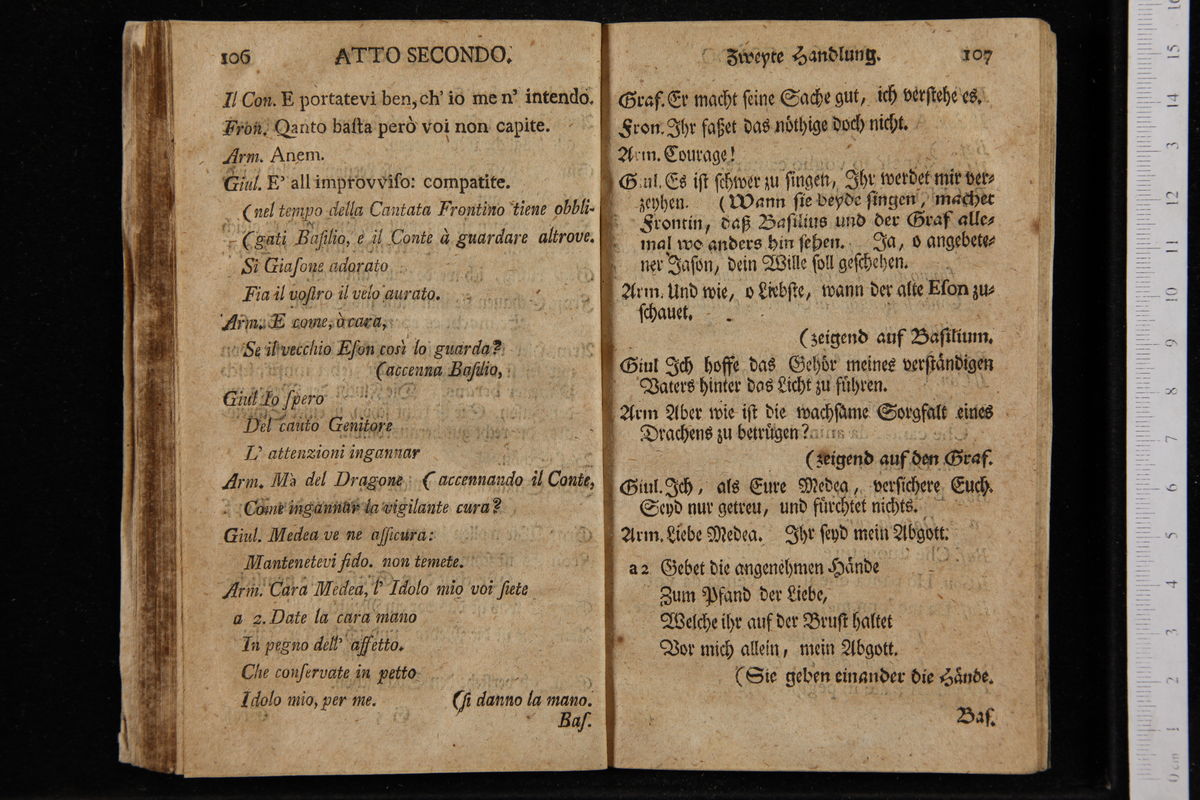 106 ATTO SECONDO.
Il Con. E portatevi ben, ch' io me n' intendo.
Fron. Qanto baſta però voi non capite.
Arm. Anem.
Giul. E' all improvviſo: compatite.
(nel tempo della Cantata Frontino tiene obbli-
(gati Baſilio, e il Conte à guardare altrove.
Si Giaſone adorato
Fia il voſtro il velo aurato.
Arm. E come, ò cara,
Se il vecchio Eſon così lo guarda?
(accenna Baſilio,
Giul Io ſpero
Del cauto Genitore
L' attenzioni ingannar
Arm. Mà del Dragone (accennando il Conte,
Come ingannar la vigilante cura?
Giul. Medea ve ne aſſicura:
Mantenetevi fido. non temete.
Arm. Cara Medea, l' Idolo mio voi ſiete
a 2. Date la cara mano
In pegno dell' affetto.
Che conſervate in petto
Idolo mio, per me. (ſi danno la mano.
Baſ.
Zweyte Handlung. 107
Graf. Er macht ſeine Sache gut, ich verſtehe es.
Fron. Ihr faßet das nöthige doch nicht.
Arm. Courage!
Giul. Es iſt ſchwer zu ſingen, Ihr werdet mir ver-
zeyhen. (Wann ſie beyde ſingen, machet
Frontin, daß Baſilius und der Graf alle-
mal wo anders hin ſehen. Ja, o angebete-
ner Jaſon, dein Wille ſoll geſchehen.
Arm. Und wie, o Liebſte, wann der alte Eſon zu-
ſchauet.
(zeigend auf Baſilium.
Giul Ich hoffe das Gehör meines verſtändigen
Vaters hinter das Licht zu führen.
Arm Aber wie iſt die wachſame Sorgfalt eines
Drachens zu betrügen?
(zeigend auf den Graf.
Giul. Ich, als Eure Medea, verſichere Euch.
Seyd nur getreu, und fürchtet nichts.
Arm. Liebe Medea. Ihr ſeyd mein Abgott.
a 2 Gebet die angenehmen Hände
Zum Pfand der Liebe,
Welche ihr auf der Bruſt haltet
Vor mich allein, mein Abgott.
(Sie geben einander die Hände.
Baſ.
15
14
3
12
11
10
9
8
7
6
5
4
3
2
1
0 cm